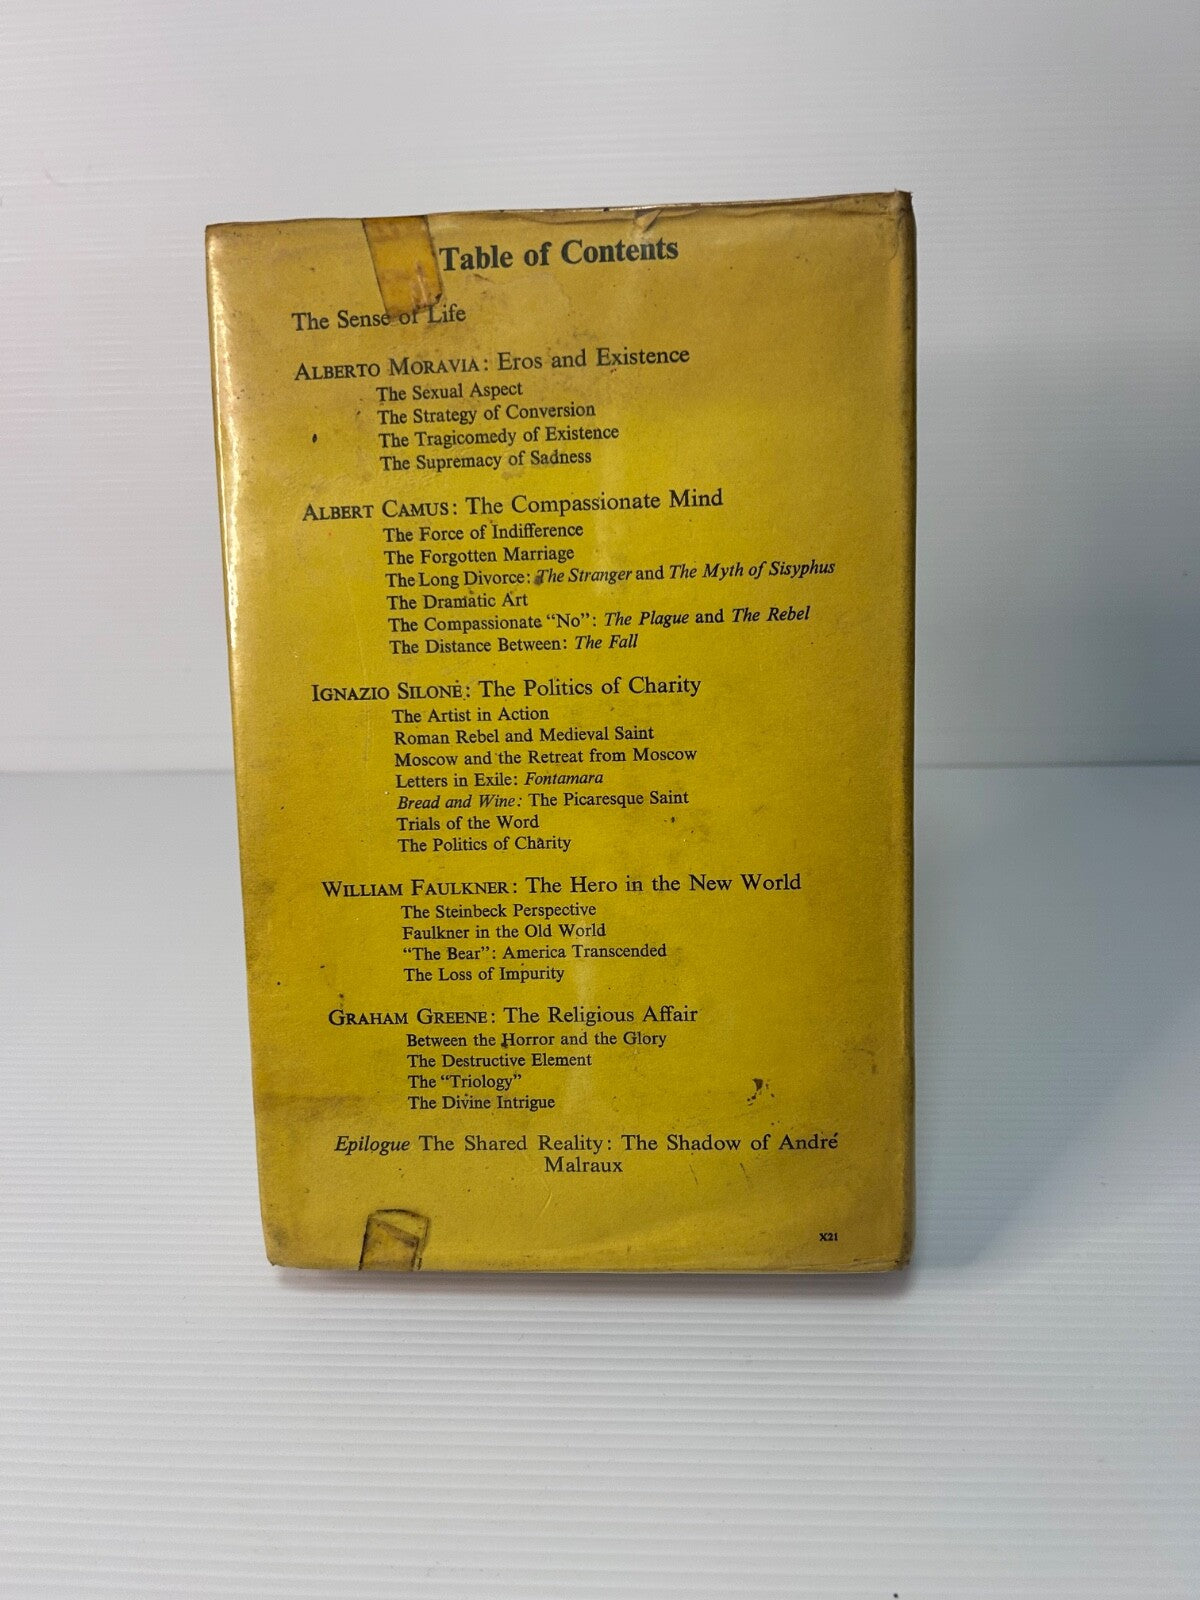 Table of Contents
The Sense of Life
ALBERTO MORAVIA: Eros and Existence
The Sexual Aspect
The Strategy of Conversion
The Tragicomedy of Existence
The Supremacy of Sadness
ALBERT CAMUS: The Compassionate Mind
The Force of Indifference
The Forgotten Marriage
The Long Divorce: The Stranger and The Myth of Sisyphus
The Dramatic Art
The Compassionate "No": The Plague and The Rebel
The Distance Between: The Fall
IGNAZIO SILONE: The Politics of Charity
The Artist in Action
Roman Rebel and Medieval Saint
Moscow and the Retreat from Moscow
Letters in Exile: Fontamara
Bread and Wine: The Picaresque Saint
Trials of the Word
The Politics of Charity
WILLIAM FAULKNER: The Hero in the New World
The Steinbeck Perspective
Faulkner in the Old World
"The Bear": America Transcended
The Loss of Impurity
GRAHAM GREENE: The Religious Affair
Between the Horror and the Glory
The Destructive Element
The "Triology"
The Divine Intrigue
Epilogue The Shared Reality: The Shadow of André
Malraux
X21